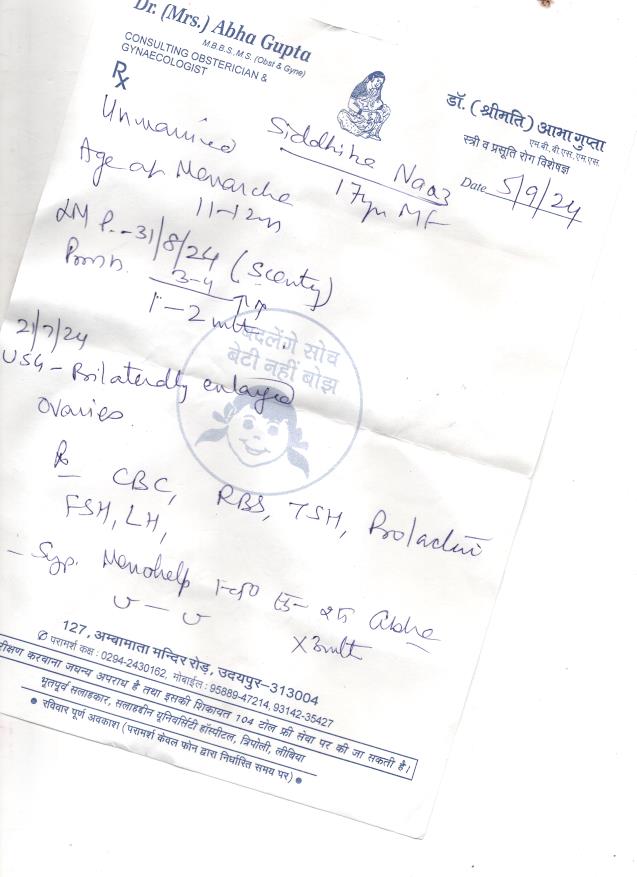 Dr. (Mrs.) Abha Gupta
M.B.B.S.,M.S. (Obst & Gyne)
CONSULTING OBSTERICIAN &
GYNAECOLOGIST
डॉ. (श्रीमति) आभा गुप्ता
एम.बी.बी.एस.,एम.एस.
स्त्री व प्रसूति रोग विशेषज्ञ
Date 5/9/24
Rx
Unmarried Siddhika Naaz
17yr MF
Age at Menarche
11-12
LMP. - 31/8/24 (Scenty)
3-4
1-2 mlt
21/7/24
USG - Bilaterally enlarged
Ovaries
बदलेंगे सोच
बेटी नहीं बोझ
Rx
CBC, RBS, TSH, Prolactin
FSH, LH,
- Syp. Menohelp
x 3 mlt
127, अम्बामाता मन्दिर रोड़, उदयपुर–313004
परामर्श कक्ष : 0294-2430162, मोबाईल : 95889-47214, 93142-35427
रीक्षण करवाना जघन्य अपराध है तथा इसकी शिकायत 104 टोल फ्री सेवा पर की जा सकती है।
भूतपूर्व सलाहकार, सलाहडीन यूनिवर्सिटी हॉस्पीटल, त्रिपोली, लीबिया
● रविवार पूर्ण अवकाश (परामर्श केवल फोन द्वारा निर्धारित समय पर) ●